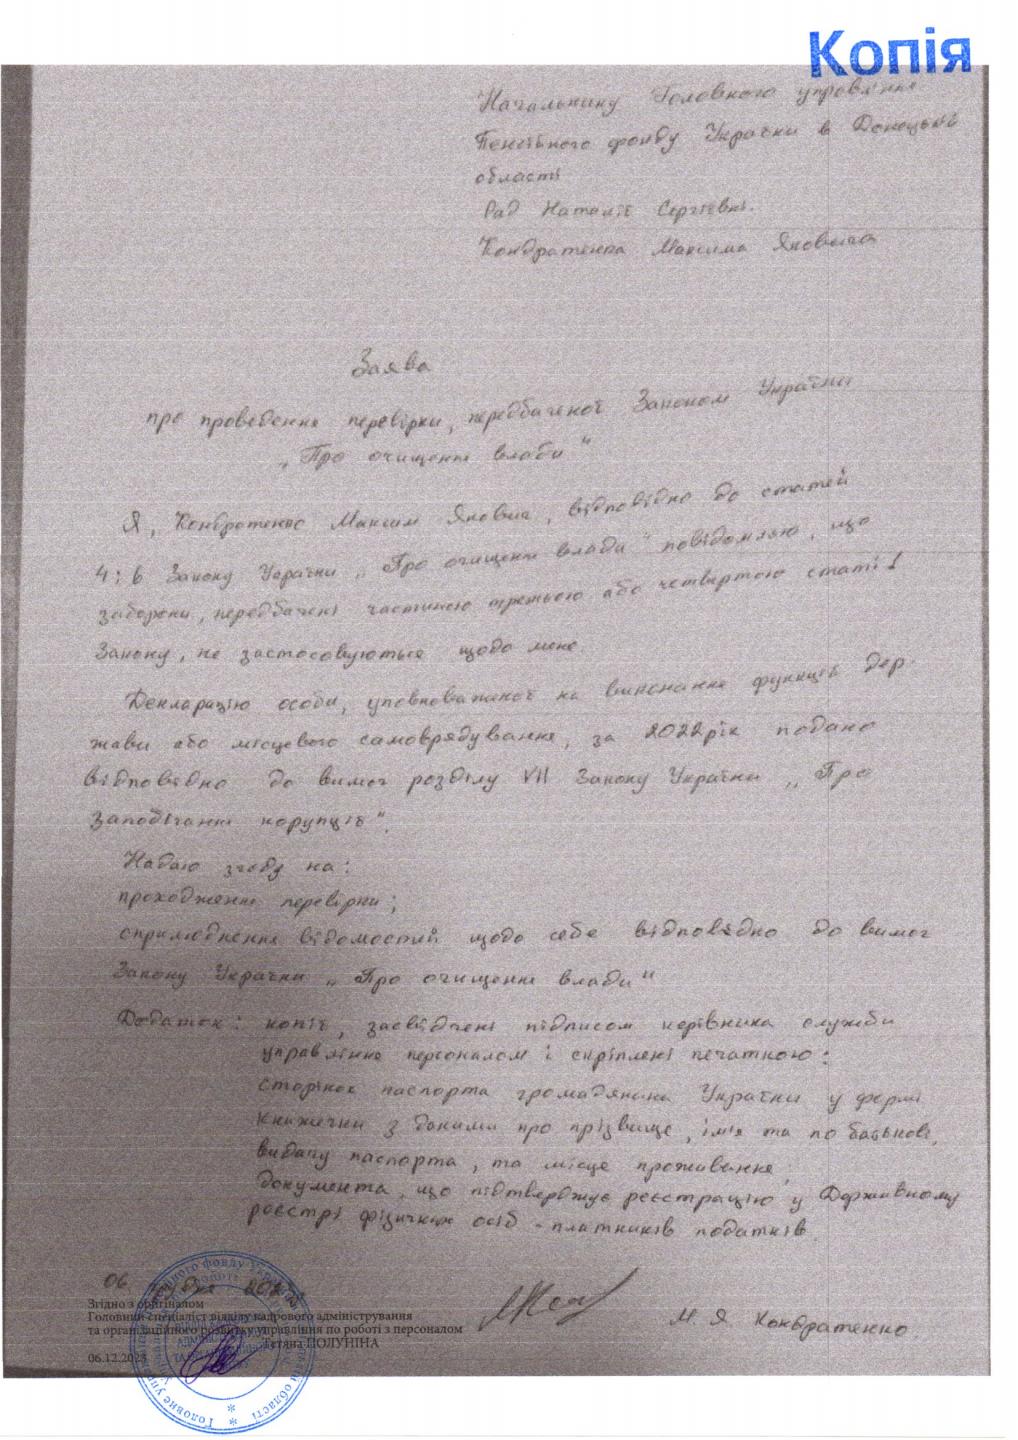 Копія
Начальнику Головного управління
Пенсійного фонду України в Донецькій
області
Рад Наталії Сергіївні.
Кондратенка Максима Яковича
Заява
про проведення перевірки, передбаченої Законом України
„Про очищення влади“
Я, Кондратенко Максим Якович, відповідно до статей
4 і 6 Закону України „Про очищення влади“ повідомляю, що
заборони, передбачені частиною третьою або четвертою статті 1
Закону, не застосовуються щодо мене.
Декларацію особи, уповноваженої на виконання функцій дер-
жави або місцевого самоврядування, за 2022 рік подано
відповідно до вимог розділу VII Закону України „Про
запобігання корупції“.
Надаю згоду на:
проходження перевірки;
оприлюднення відомостей щодо себе відповідно до вимог
Закону України „Про очищення влади“
Додаток: копії, засвідчені підписом керівника служби
управління персоналом і скріплені печаткою:
сторінок паспорта громадянина України у формі
книжечки з даними про прізвище, ім'я та по батькові,
видачу паспорта, та місце проживання;
документа, що підтверджує реєстрацію у Державному
реєстрі фізичних осіб - платників податків.
06 грудня
М. Я. Кондратенко
Згідно з оригіналом
Головний спеціаліст відділу кадрового адміністрування
та організаційного розвитку управління по роботі з персоналом
Тетяна ПОЛУНІНА
06.12.2023